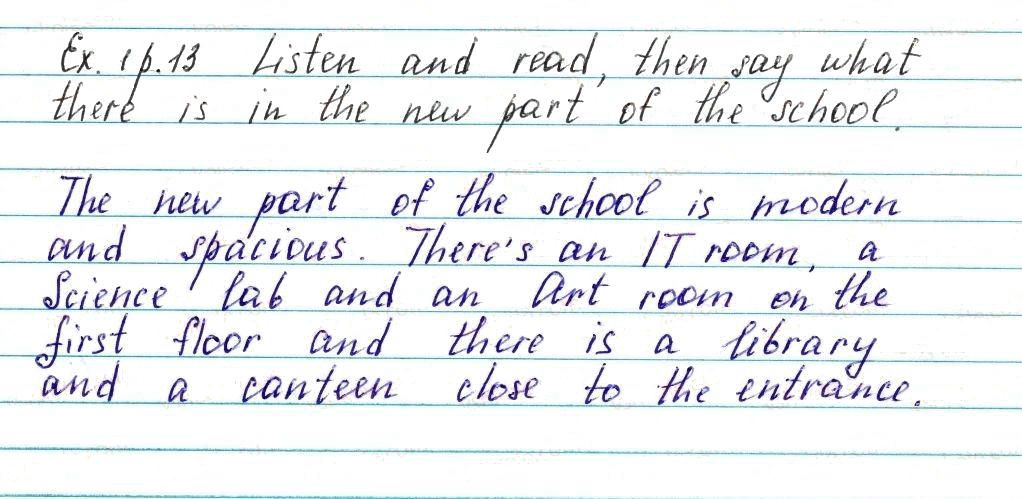 Ex. 1 p.13 Listen and read, then say what
there is in the new part of the school.
The new part of the school is modern
and spacious. There's an IT room, a
Science lab and an Art room on the
first floor and there is a library
and a canteen close to the entrance.